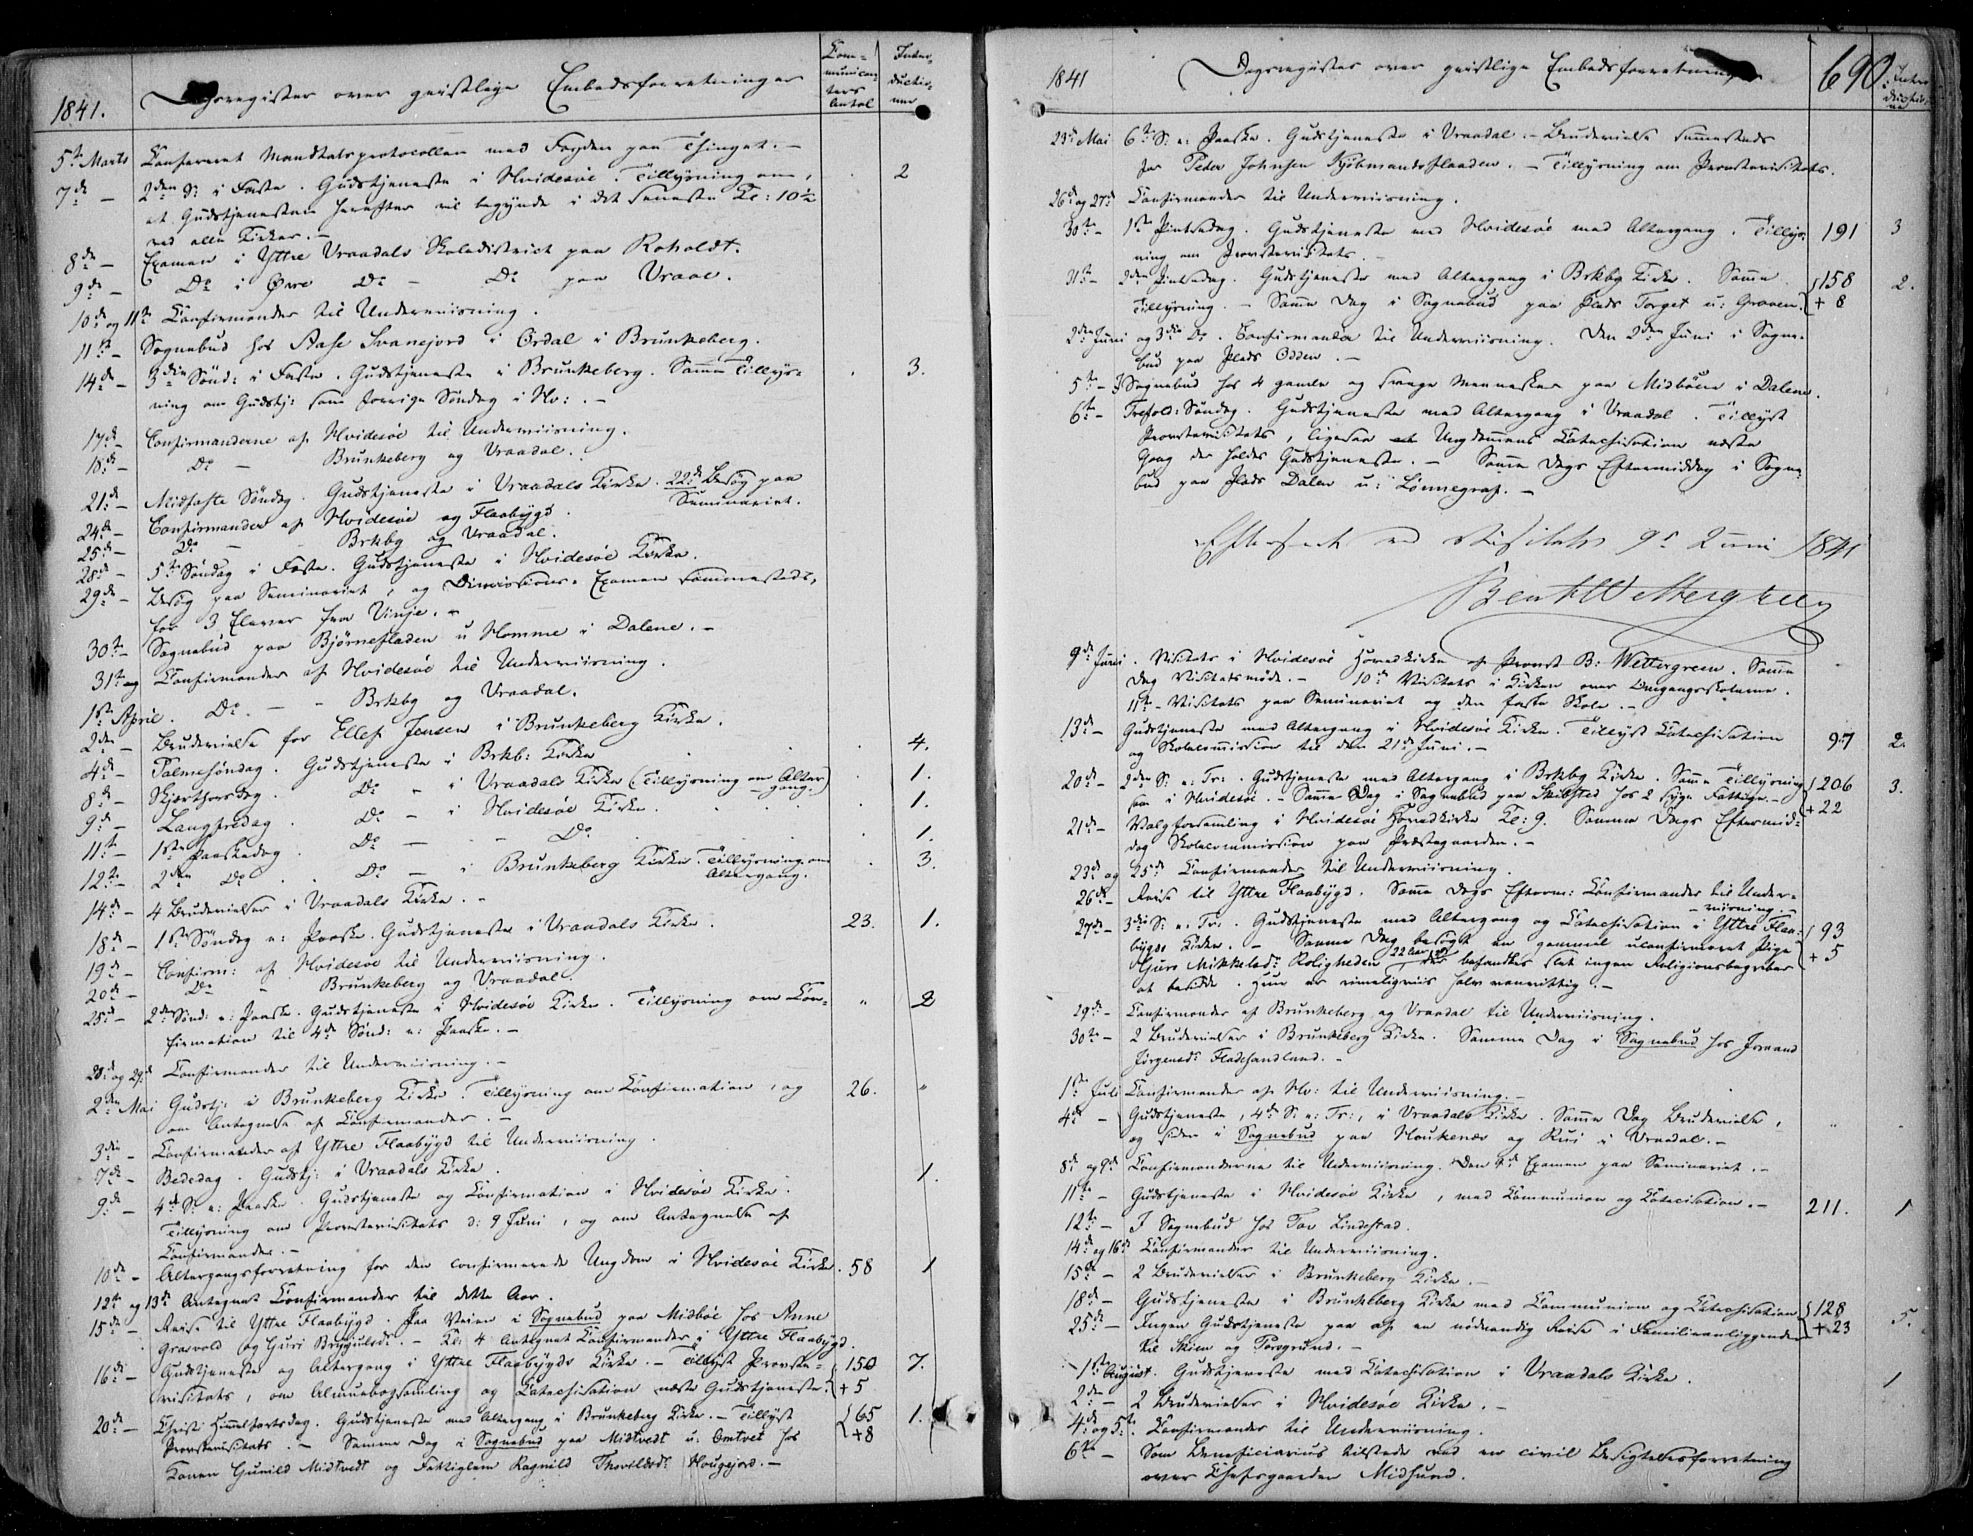 1841.
Dagsregister over geistlige Embedsforretninger
Com-
munican-
ters
Antal
Intro-
ductio-
ner
5te Marts Confereret Mandtalsprotocollen med Fogden paa Thinget. -
7de - 2den S: i Faste. Gudstjeneste i Hvidesøe. Tillysning om, 2
at Gudstjenesten herefter vil begynde i det seneste Kl: 10½
ved alle Kirker. -
8de - Examen i Yttre Vraadals Skoledistrict paa Roholdt.
9de - Do i Øvre Do - Do paa Vraae.
10de og 11te Confirmander til Underviisning.
11te - Sognebud hos Aase Svanejord i Ordal i Brunkeberg.
14de - 3die Sønd: i Faste. Gudstjeneste i Brunkeberg. Samme Tillys- 3.
ning om Gudstj: som forrige Søndag i Hv: . -
17de - Confirmanderne af Hvidesøe til Underviisning.
18de - Do - Brunkeberg og Vraadal.
21de - Midfaste Søndag. Gudstjeneste i Vraadals Kirke. 22de Besøg paa
Seminariet.
24de - Confirmander af Hvidesøe og Flaabygd.
25de - Do - Brkbg og Vraadal.
28de - 5te Søndag i Faste. Gudstjeneste i Hvidesøe Kirke.
29de - Besøg paa Seminariet, og Dimissions-Examen sammesteds,
for 3 Elever fra Vinje. -
30te - Sognebud paa Bjørnefladen u Homme i Dalene. -
31te og Confirmander af Hvidesøe til Underviisning.
1ste April. Do. - - Brkbg og Vraadal.
2den - Brudevielse for Ellef Jensen i Brunkeberg Kirke.
4de - Palmesøndag. Gudstjeneste i Brkb: Kirke 4.
8de - Skjærthorsdag. Do - i Vraadals Kirke (Tillysning om Alter- 1.
gang.)
9de - Langfredag. Do - i Hvidesøe Kirke. 1.
11te - 1ste Paaskedag. Do - - Do. 1.
12te - 2den Do. Do - i Brunkeberg Kirke. Tillysning om 3.
Altergang.
14de - 4 Brudevielser i Vraadals Kirke. -
18de - 1ste Søndag e: Paaske. Gudstjeneste i Vraadals Kirke. 23. 1.
19de - Confirm: af Hvidesøe til Underviisning.
20de - Do - Brunkeberg og Vraadal
25de - 2den Sønd: e: Paaske. Gudstjeneste i Hvidesøe Kirke. Tillysning om Con- " 2
firmation til 4de Sønd: e: Paaske. -
28de og 29de Confirmander til Underviisning. -
2den Mai Gudstj: i Brunkeberg Kirke. Tillysning om Confirmation, og 26. "
om Antagelse af Confirmander. -
3die - Confirmander af Yttre Flaabygd til Underviisning.
7de - Bededag. Gudstj: i Vraadals Kirke. 1.
9de - 4de S: e: Paaske. Gudstjeneste og Confirmation i Hvidesøe Kirke.
Tillysning om Provstevisitats d: 9 Juni, og om Antagelse af
Confirmander. -
10de - Altergangsforretning for den confirmerede Ungdom i Hvidesøe Kirke. 58 1
12te og 13de Antegnet Confirmander til dette Aar.
15de - Reise til Yttre Flaabygd. Paa Veien i Sognebud paa Midbøe hos Anne
Grasvold og Guri Brynulsdr. - Kl: 4 Antegnet Confirmander i Yttre Flaabygd.
16de - Gudstjeneste og Altergang i Yttre Flaabygds Kirke. - Tillyst Provste- 150 7.
visitats, om Almuebogsamling og Catechisation næste Gudstjeneste. + 5
20de - Christi Himmelfartsdag. Gudstjeneste med Altergang i Brunkeberg Kirke. - Tillyst 65 1.
Provstevisitats. - Samme Dag i Sognebud paa Midtvedt u: Omtvet hos + 8
Konen Gunild Midtvedt og Fattiglem Ragnild Thovildsdr Hougejord. -
1841
Dagsregister over geistlige Embedsforretninger
690.
Intro-
ductio-
ner
23de Mai 6te S: e: Paaske. Gudstjeneste i Vraadal. - Brudevielse sammesteds
for Peder Johnsen Kjøbmandsflaaden. - Tillysning om Provstevisitats.
26de og 27de Confirmander til Underviisning.
30te - 1ste Pintsedag. Gudstjeneste ved Hvidesøe med Altergang. Tillys- 191 3
ning om Provstevisitats. -
31te - 2den Pintsedag. Gudstjeneste med Altergang i Brkbg Kirke. Samme 158 2.
Tillysning. - Samme Dag i Sognebud paa Plads Torget u: Graven. + 8
2den Juni og 3die Do. Confirmander til Underviisning. Den 2den Juni i Sogne-
bud paa Plads Odden. -
5te - I Sognebud hos 4 gamle og svage Mennesker paa Midbøen i Dalene.
6te - Trefold: Søndag. Gudstjeneste med Altergang i Vraadal. Tillyst
Provstevisitats, ligesaa Ungdommens Catechisation næste
Gang der holdes Gudstjeneste. - Samme Dags Eftermiddag i Sogne-
bud paa Plads Dalen u: Lønnegrav. -
Efterseet ved Visitats 9de Juni 1841
Bent Wettergreen
9de Juni. Visitats i Hvidesøe Hovedkirke af Provst B: Wettergreen. Samme
Dag Visitatsmøde. - 10de Visitats i Kirken over Omgangsskolerne.
11te - Visitats paa Seminariet og den faste Skole. -
13de - Gudstjeneste med Altergang i Hvidesøe Kirke. Tillyst Catechisation 97 2.
og Skolecommission til den 21de Juni. -
20de - 2den S: e: Tr: . Gudstjeneste med Altergang i Brkbg Kirke. Samme Tillysning 206 3.
som i Hvidesøe. - Samme Dag i Sognebud paa Skibsted hos 2 syge Fattige. - + 22
21de - Valgforsamling i Hvidesøe Hovedkirke Kl: 9. Samme Dags Eftermid-
dag Skolecommission paa Præstegaarden. -
23de og 25de Confirmander til Underviisning.
26de - Reise til Yttre Flaabygd. Samme Dags Efterm: Confirmander til Under-
- viisning -
27de - 3die S: e: Tr: . Gudstjeneste med Altergang og Catechisation i Yttre Flaa- 93
bygds Kirke. - Samme Dag besøgt en gammel uconfirmeret Pige + 5
Gjuro Mikkelsdr Roligheden 22 Aar, der befandtes slet ingen Religionsbegreber
at besidde. Hun er rimeligviis halv vanvittig. -
29de - Confirmander af Brunkeberg og Vraadal til Underviisning.
30te - 2 Brudevielser i Brunkeberg Kirke. Samme Dag i Sognebud hos Joraand
Jørgensdr Fladesandland. -
1ste Juli Confirmander af Hv: til Underviisning. -
4de - Gudstjeneste, 4de S: e: Tr:, i Vraadals Kirke. Samme Dag Brudevielse,
og siden i Sognebud paa Houkenæs og Rui i Vraadal. -
8de og 9de Confirmanderne til Underviisning. Den 9de Examen paa Seminariet. -
11te - Gudstjeneste i Hvidesøe Kirke, med Communion og Catecisation. - 211. 1
12te - I Sognebud hos Tor Lindestad.
14de og 16de Confirmander til Underviisning.
15de - 2 Brudevielser i Brunkeberg Kirke. -
18de - Gudstjeneste i Brunkeberg Kirke med Communion og Catechisation 128 5.
25de - Ingen Gudstjeneste paa Gr: en nødvendig Reise i Familieanliggender + 23
til Skien og Porsgrund. -
1ste August. Gudstjeneste med Catechisation i Vraadals Kirke. 1
2den - 2 Brudevielser i Hvidesøe Kirke. -
4de og 5te Confirmander til Underviisning.
6te - Som Beneficiarius tilstede ved en civil Besigtelsesforretning
over Chefsgaarden Midsund.